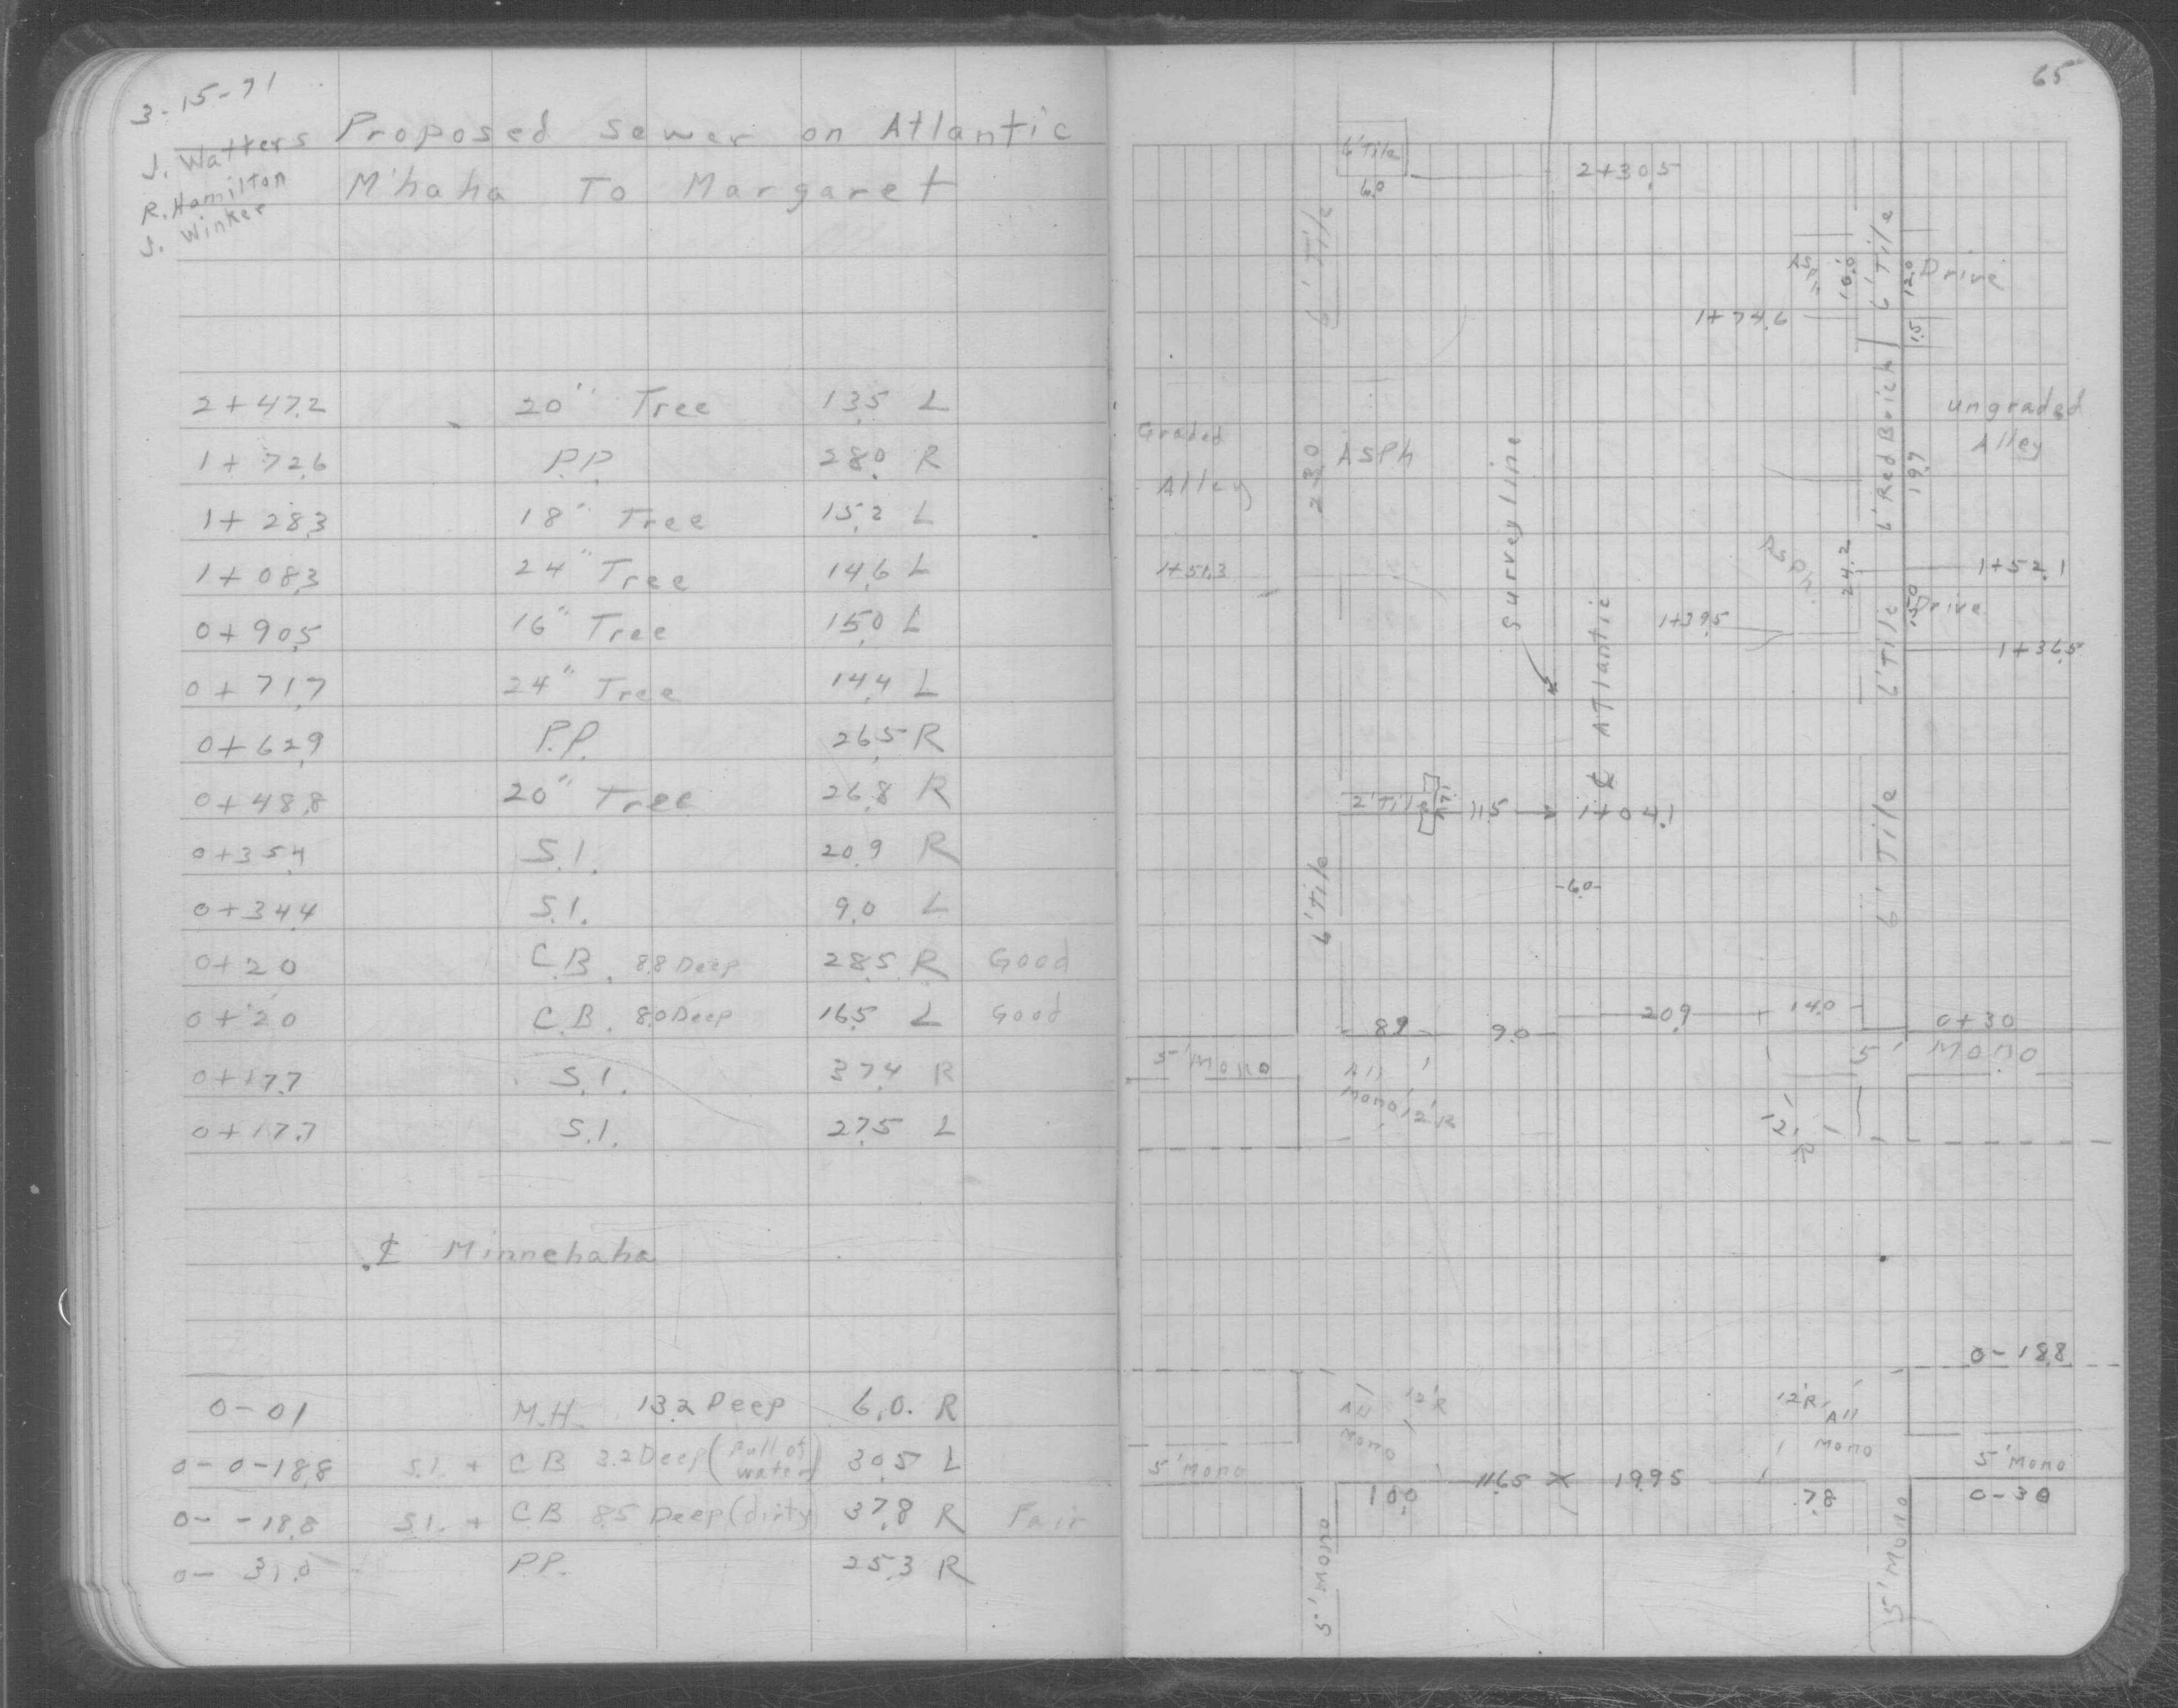 3-15-71
J. Watters
R. Hamilton
J. Winker
Proposed Sewer on Atlantic
M'haha To Margaret
2+47.2 20" Tree 13.5 L
1+72.6 P.P. 28.0 R
1+28.3 18" Tree 15.2 L
1+08.3 24" Tree 14.6 L
0+90.5 16" Tree 15.0 L
0+71.7 24" Tree 14.4 L
0+62.9 P.P. 26.5 R
0+48.8 20" Tree 26.8 R
0+35.4 S.I. 20.9 R
0+34.4 S.I. 9.0 L
0+20 C.B. 8.8 Deep 28.5 R Good
0+20 C.B. 8.0 Deep 16.5 L Good
0+17.7 S.I. 37.4 R
0+17.7 S.I. 27.5 L
℄ Minnehaha
0-01 M.H. 13.2 Deep 6.0. R
0-0-18.8 S.I. + CB 3.2 Deep (full of water) 30.5 L
0- -18.8 S.I. + CB 8.5 Deep (dirty) 37.8 R Fair
0- 31.0 P.P. 25.3 R
65
6' Tile
6.0
2+30.5
6' Tile
Asph
16.0
6' Tile
12.0
Drive
1+74.6
1.5
Graded
Alley
23.0
ASPh
Survey line
6' Red Brick
19.7
ungraded
Alley
1+51.3
Asph.
24.2
1+52.1
15.0
Drive
1+39.5
6' Tile
1+36.5
℄ ATlantic
2' Tile
11.5
1+04.1
6' Tile
6.0
6' Tile
8.9
9.0
20.9
14.0
0+30
5' Mono
All
Mono 12' R
5' Mono
12'
R
0-18.8
All
Mono
12' R
12'R
All
Mono
5' Mono
10.0
11.65 X 19.95
7.8
5' Mono
0-30
5' Mono
5' Mono